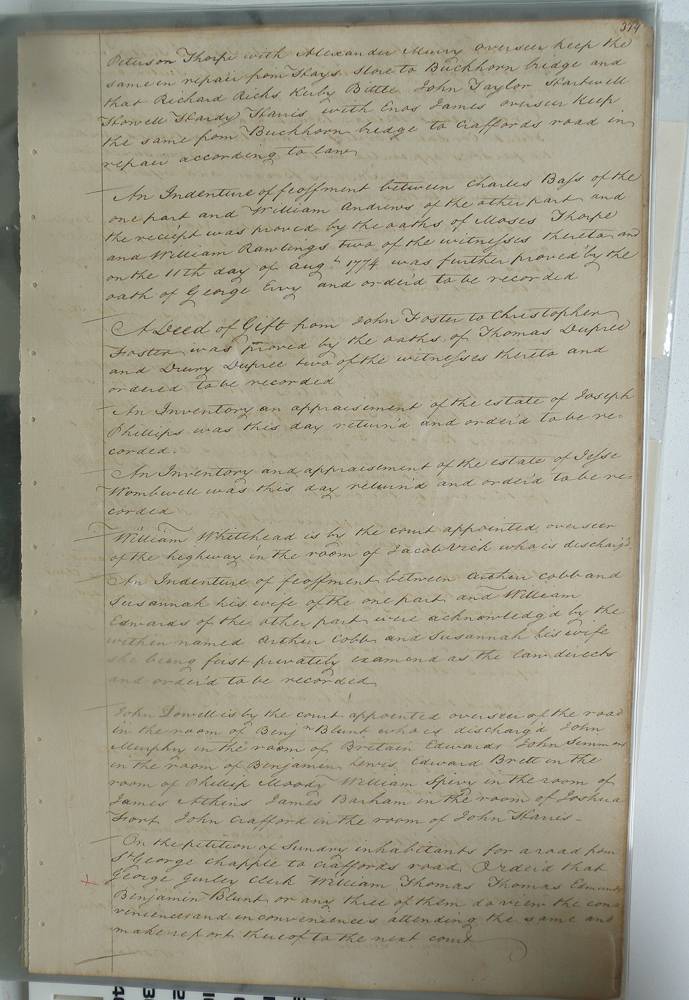 374
Peterson Thorpe with Alexander Murry overseer keep the
same in repair from Hays Store to Buckhorn bridge and
that Richard Ricks Kirby Bittle John Taylor Hartwell
Howell Hardy Harris with Enos James overseer keep
the same from Buckhorn bridge to Craffords road in
repair according to law
An Indenture of feoffment between Charles Bass of the
one part and William Andrews of the other part and
the receipt was proved by the oaths of Moses Thorpe
and William Rawlings two of the witnesses thereto and
on the 11th day of Augt 1774 was further proved by the
oath of George Ervy and order'd to be recorded
A Deed of Gift from John Foster to Christopher
Foster was proved by the oaths of Thomas Dupree
and Drury Dupree two of the witnesses thereto and
ordered to be recorded
An Inventory an appraisement of the estate of Joseph
Phillips was this day return'd and order'd to be re-
corded.
An Inventory and appraisement of the estate of Jesse
Wombwell was this day return'd and order'd to be re-
corded
William Whitehead is by the court appointed overseer
of the highway in the room of Jacob Vick who is discharg'd
An Indenture of feoffment between Arthur Cobb and
Susannah his wife of the one part and William
Edwards of the other part were acknowledg'd by the
within named Arthur Cobb and Susannah his wife
she being first privately examend as the law directs
and order'd to be recorded
John Dowell is by the court appointed overseer of the road
in the room of Benjn Blunt who is discharg'd John
Murphry in the room of Britain Edwards John Simmons
in the room of Benjamin Lewis Edward Brett in the
room of Phillip Moody William Spivy in the room of
James Atkins James Barham in the room of Joshua
Fort John Crafford in the room of John Harris -
On the petition of Sundry inhabitants for a road from
St George chapple to Craffords road Order'd that
George Gurley Clerk William Thomas Thomas Edmunds
Benjamin Blunt or any three of them do view the con-
veniences and inconveniences attending the same and
make report thereof to the next court